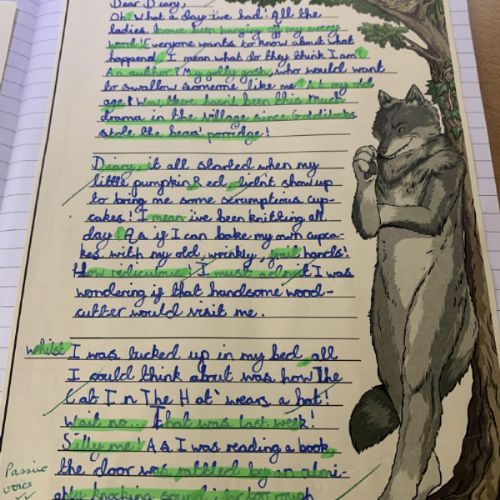 Dear Diary,
Oh what a day ive had! All the
ladies have been hanging off my every
word! Everyone wants to know about what
happend. I mean what do they think I am?
An author? My golly gosh, who would want
to swallow someone like me. At my old
age? Wow, there hasn't been this much
drama in the village since Goldilocks
stole the bears porridge!
Diary, it all started when my
little pumpkin Red didn't show up
to bring me some scrumptious cup-
cakes! I mean ive been knitting all
day! As if I can bake my own cupca-
kes with my old, wrinkly, frail hands!
How ridiculous! I must admit I was
wondering if that handsome wood-
cutter would visit me.
whilst I was tucked up in my bed, all
I could think about was how 'The
Cat In The Hat' wears a hat!
Wait no... That was last week!
Silly me! As I was reading a book,
the door was rattled by an almi-
Passive
voice
ghty knocking sound; far too rough